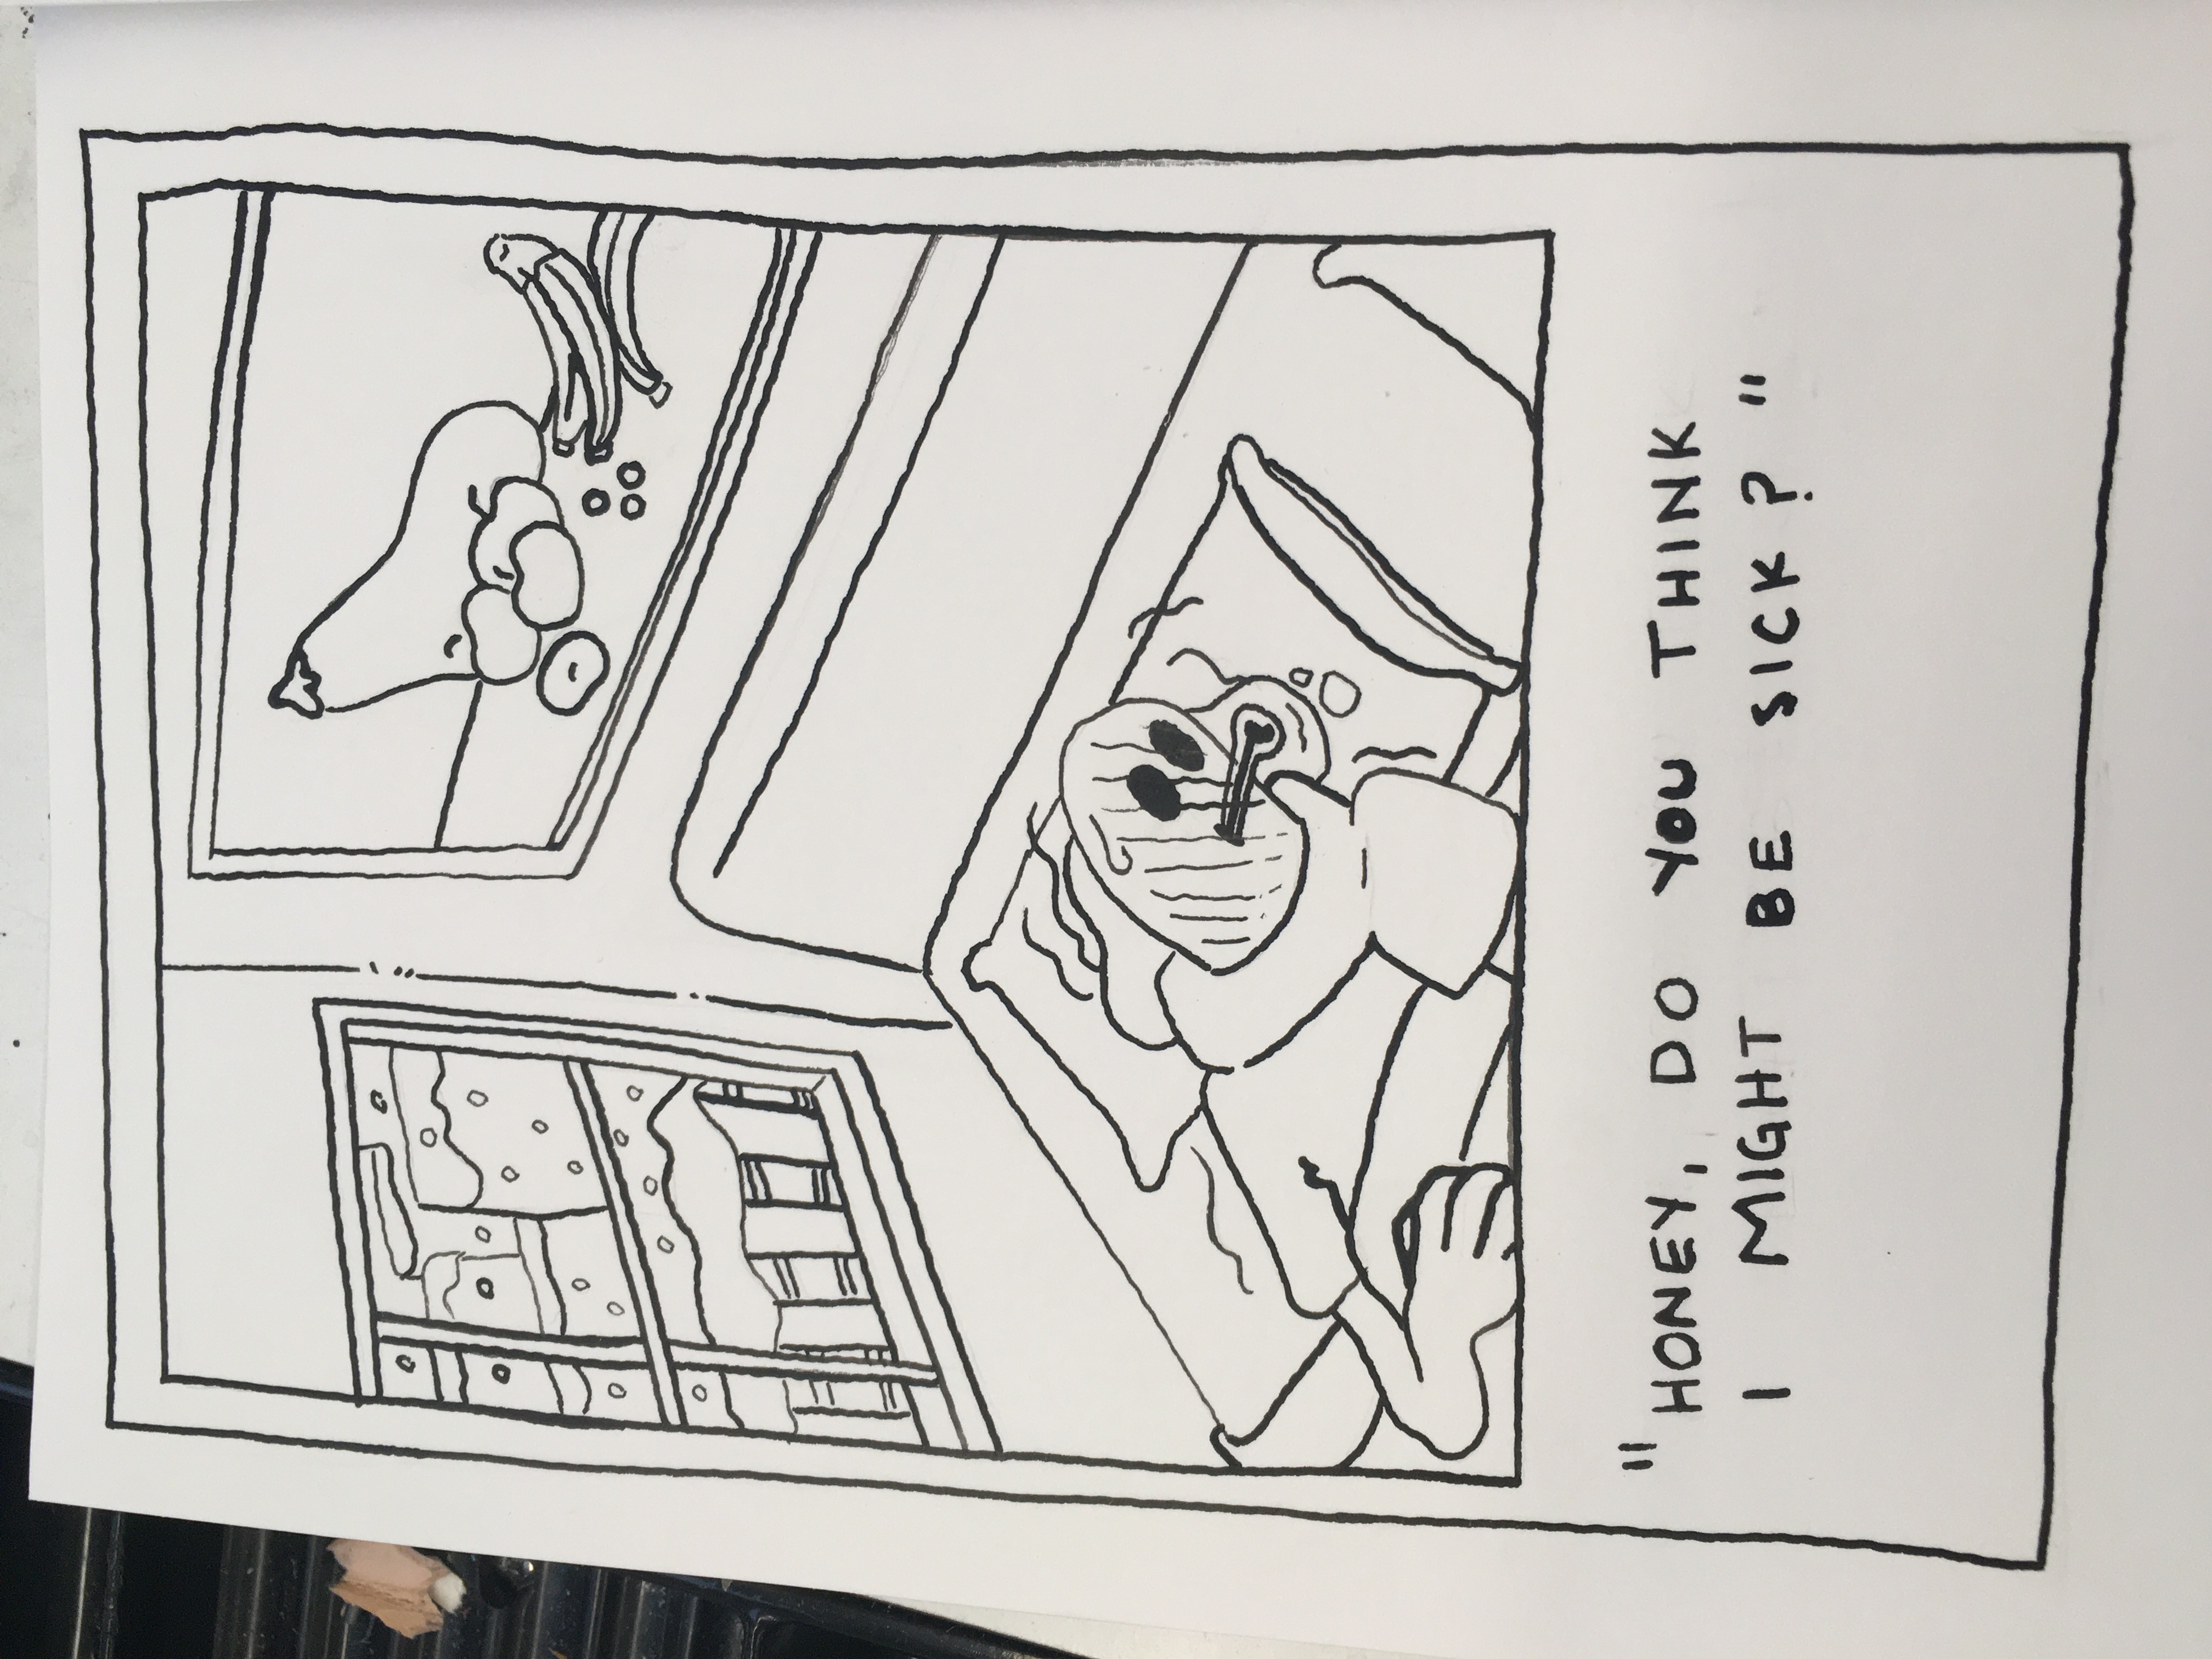 "HONEY, DO YOU THINK
I MIGHT BE SICK?"